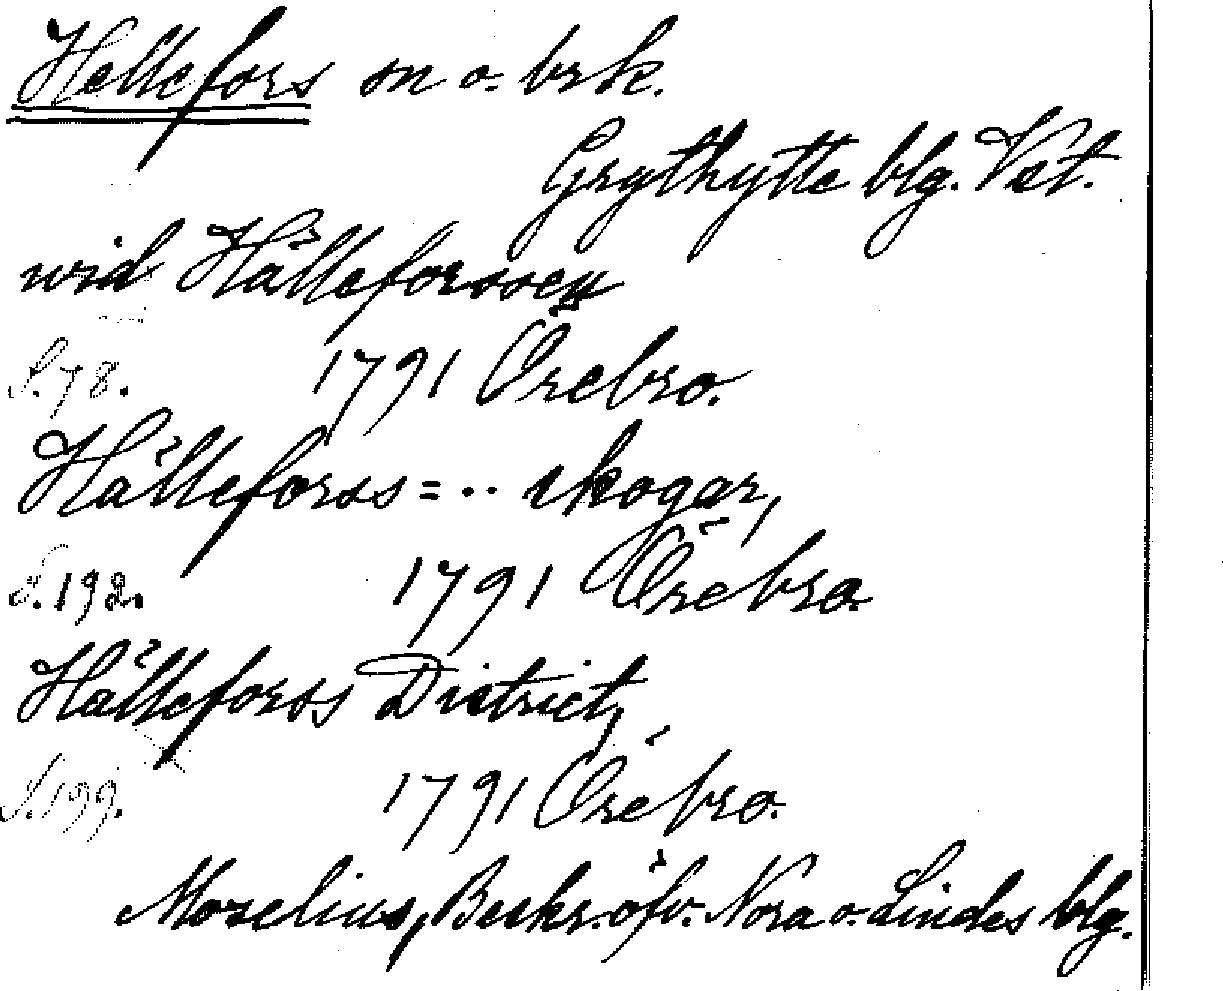 Hellefors sn o. brk.
Grythytte blg. Vst.
wid Hälleforssen
S. 78. 1791 Örebro.
Hälleforss=.. skogar,
S. 192. 1791 Örebro.
Hälleforss District,
S. 199. 1791 Örebro.
Morelius, Beskr. öfv. Nora o. Lindes blg.